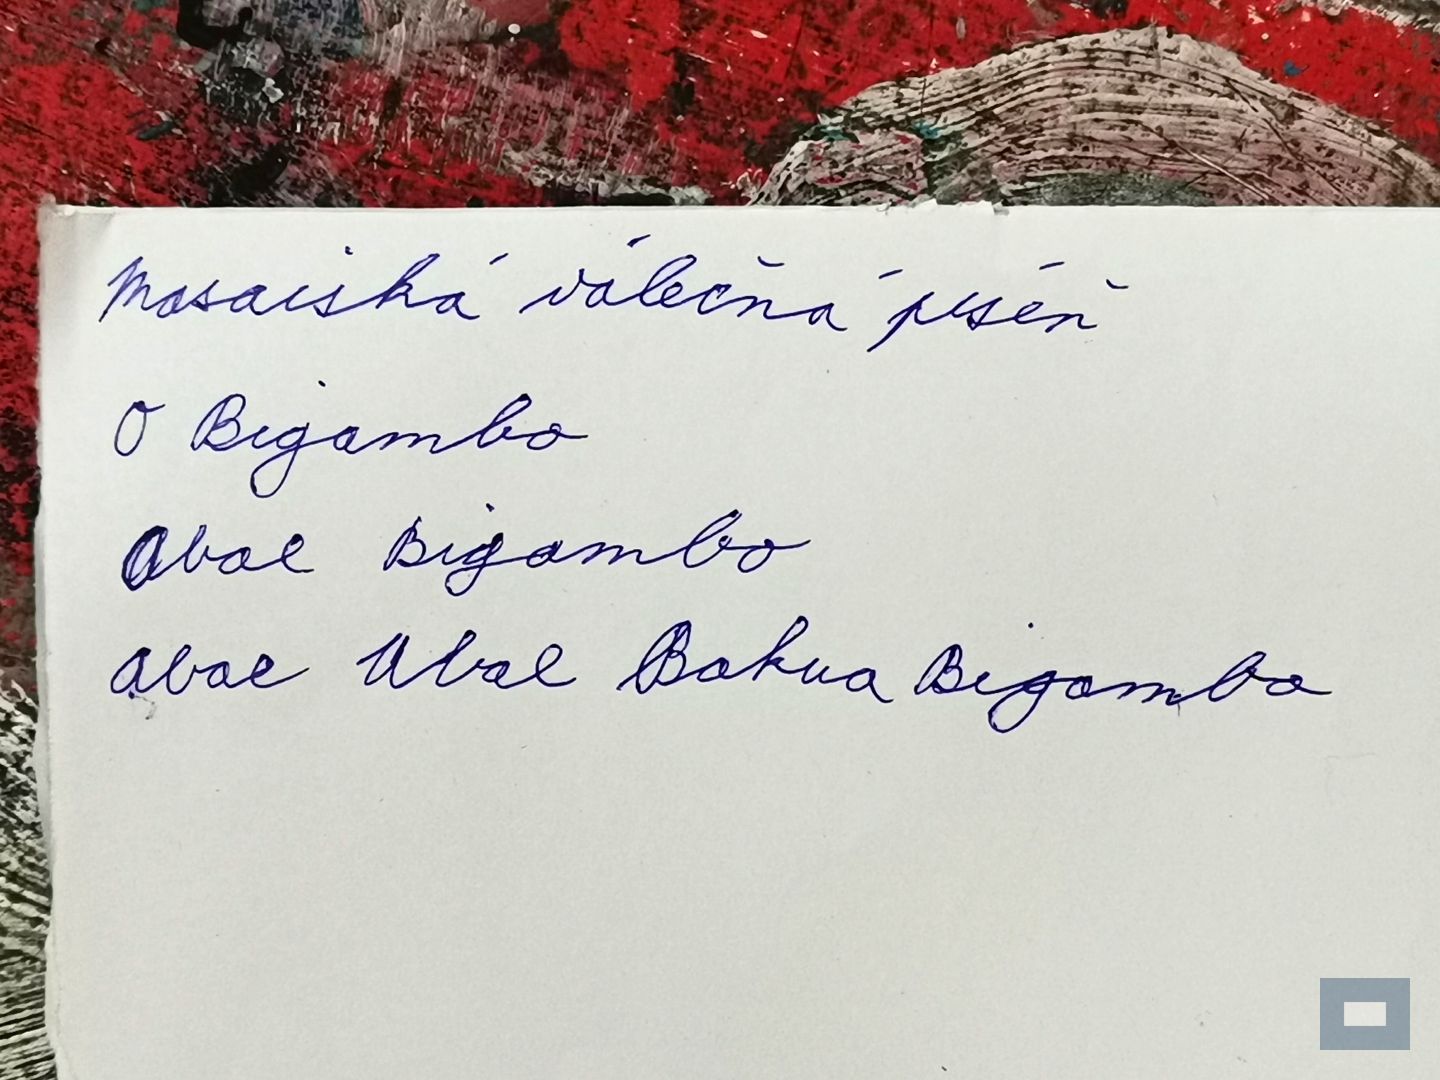 Masaiská válečná píseň
O Bigambo
Abae Bigambo
Abae Abae Bakua Bigambo